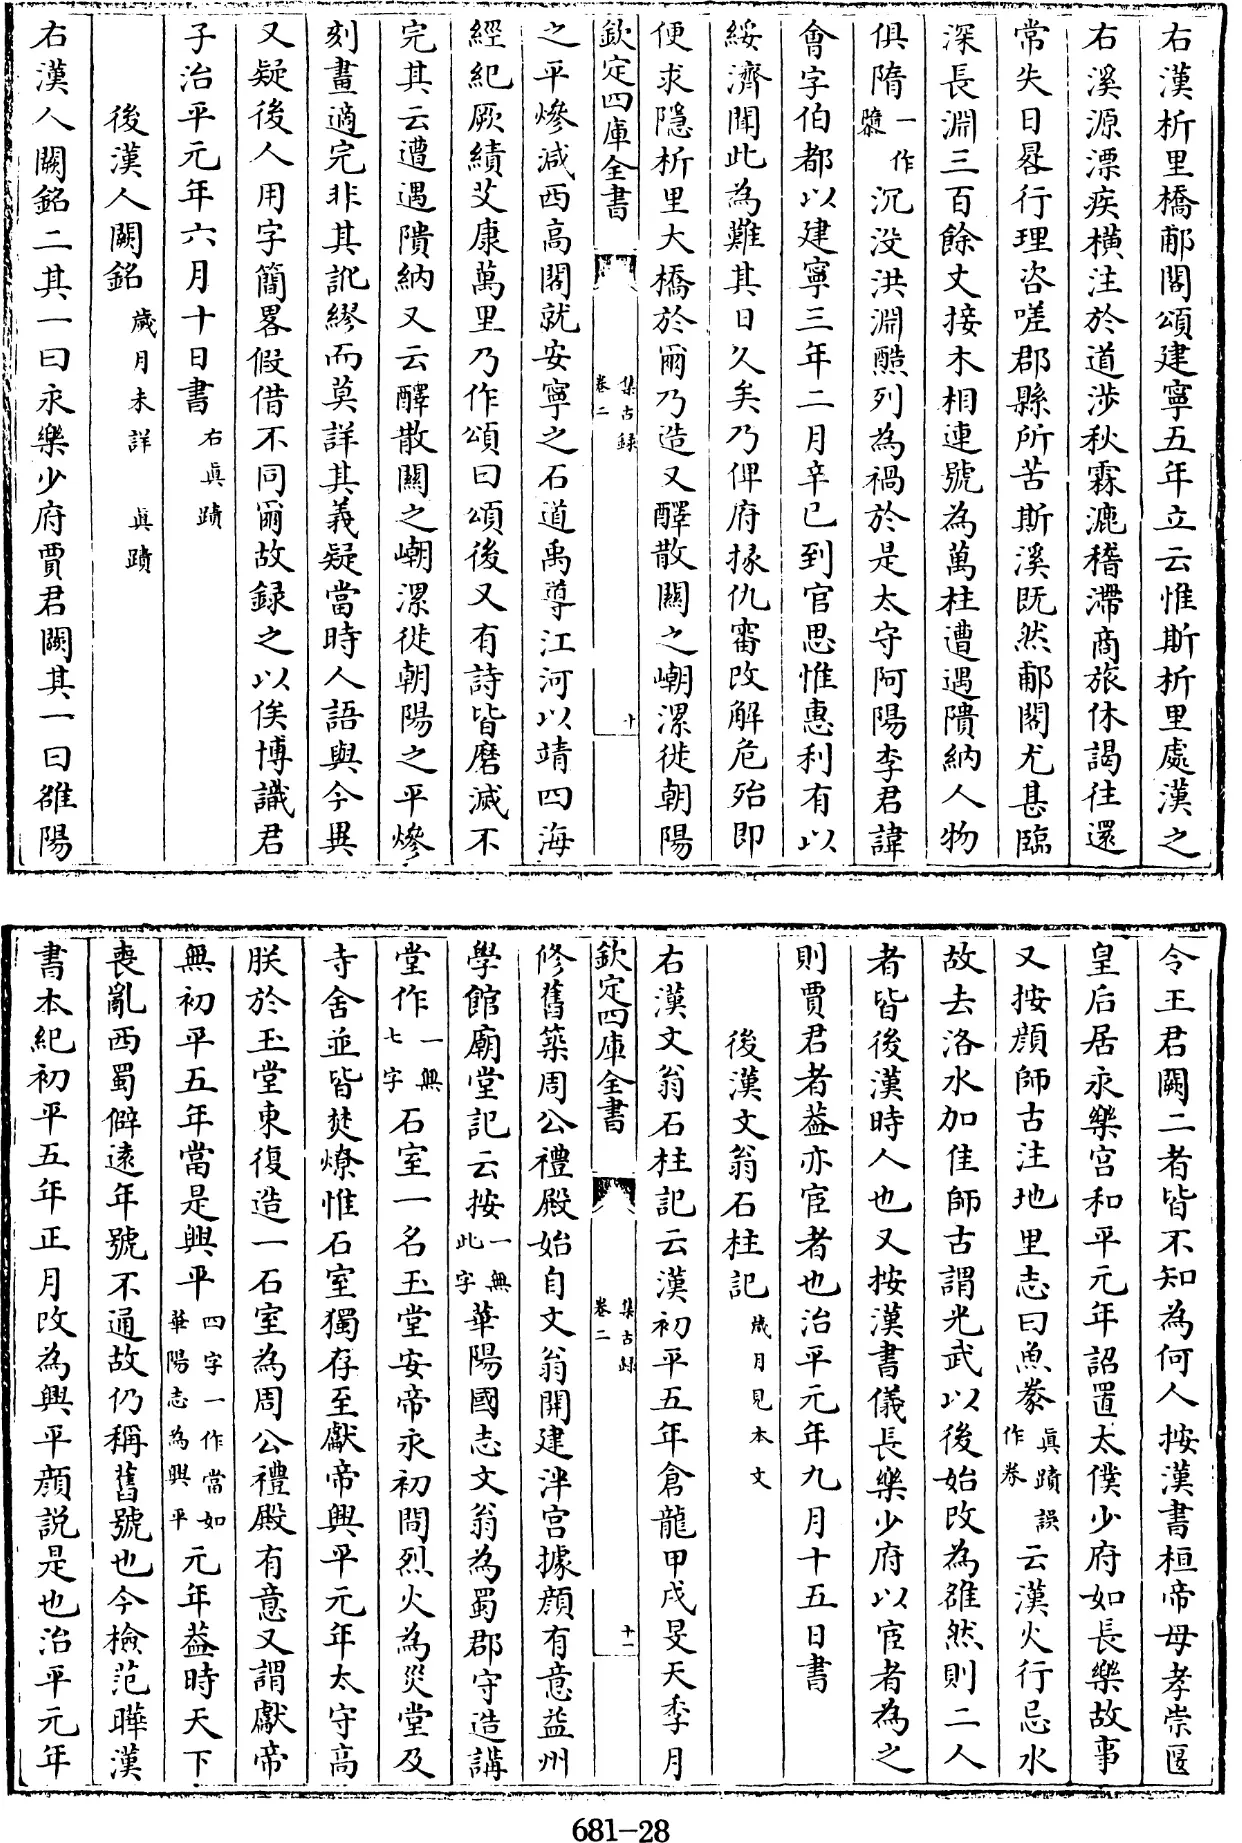 右漢析里橋郙閣頌建寧五年立云惟斯析里處漢之
右溪源漂疾横注於道涉秋霖漉稽滯商旅休謁往還
常失日晷行理咨嗟郡縣所苦斯溪既然郙閣尤甚臨
深長淵三百餘丈接木相連號為萬柱遭遇隤納人物
俱隋一作隳沉没洪淵酷列為禍於是太守阿陽李君諱
會字伯都以建寧三年二月辛已到官思惟惠利有以
綏濟聞此為難其日久矣乃俾府掾仇審改解危殆即
便求隱析里大橋於爾乃造又醳散關之嶃漯徙朝陽
欽定四庫全書 集古録卷二 十
之平燯減西高閣就安寧之石道禹導江河以靖四海
經紀厥績艾康萬里乃作頌曰頌後又有詩皆磨滅不
完其云遭遇隤納又云醳散關之嶃漯徙朝陽之平燯
刻畫適完非其訛繆而莫詳其義疑當時人語與今異
又疑後人用字簡畧假借不同爾故録之以俟博識君
子治平元年六月十日書右真蹟
後漢人闕銘歲月未詳 真蹟
右漢人闕銘二其一曰永樂少府賈君闕其一曰雒陽
令王君闕二者皆不知為何人按漢書桓帝母孝崇匽
皇后居永樂宫和平元年詔置太僕少府如長樂故事
又按顔師古注地里志曰魚豢真蹟誤作券云漢火行忌水
故去洛水加隹師古謂光武以後始改為雒然則二人
者皆後漢時人也又按漢書儀長樂少府以宦者為之
則賈君者葢亦宦者也治平元年九月十五日書
後漢文翁石柱記歲月見本文
右漢文翁石柱記云漢初平五年倉龍甲戌旻天季月
欽定四庫全書 集古録卷二 十一
修舊築周公禮殿始自文翁開建泮宫據顔有意益州
學館廟堂記云按一無此字華陽國志文翁為蜀郡守造講
堂作一無七字石室一名玉堂安帝永初間烈火為災堂及
寺舍並皆焚燎惟石室獨存至獻帝興平元年太守高
朕於玉堂東復造一石室為周公禮殿有意又謂獻帝
無初平五年當是興平四字一作當如華陽志為興平元年葢時天下
喪亂西蜀僻逺年號不通故仍稱舊號也今檢范曄漢
書本紀初平五年正月改為興平顔説是也治平元年
681-28